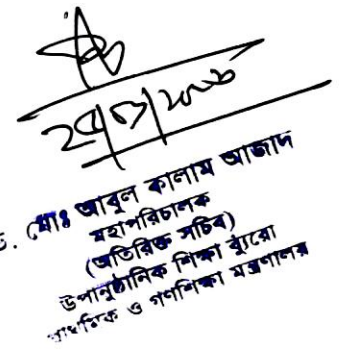 ড. মোঃ আবুল কালাম আজাদ
মহাপরিচালক
(অতিরিক্ত সচিব)
উপানুষ্ঠানিক শিক্ষা ব্যুরো
প্রাথমিক ও গণশিক্ষা মন্ত্রণালয়